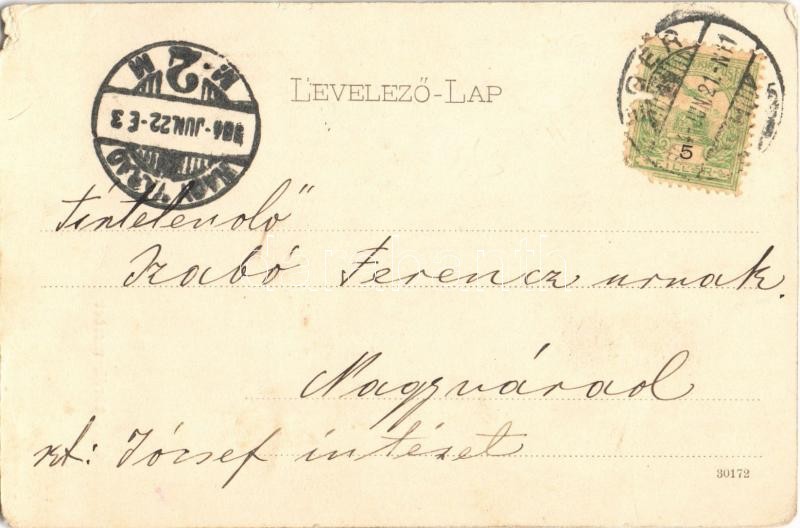 LEVELEZŐ-LAP
M. 2 M
904-JUN.22-E 3
NAGYVÁRAD
EGER
JUN 21
5
Tintelendő"
Szabó Ferencz urnak.
Nagyvárad
szt: József intézet
30172